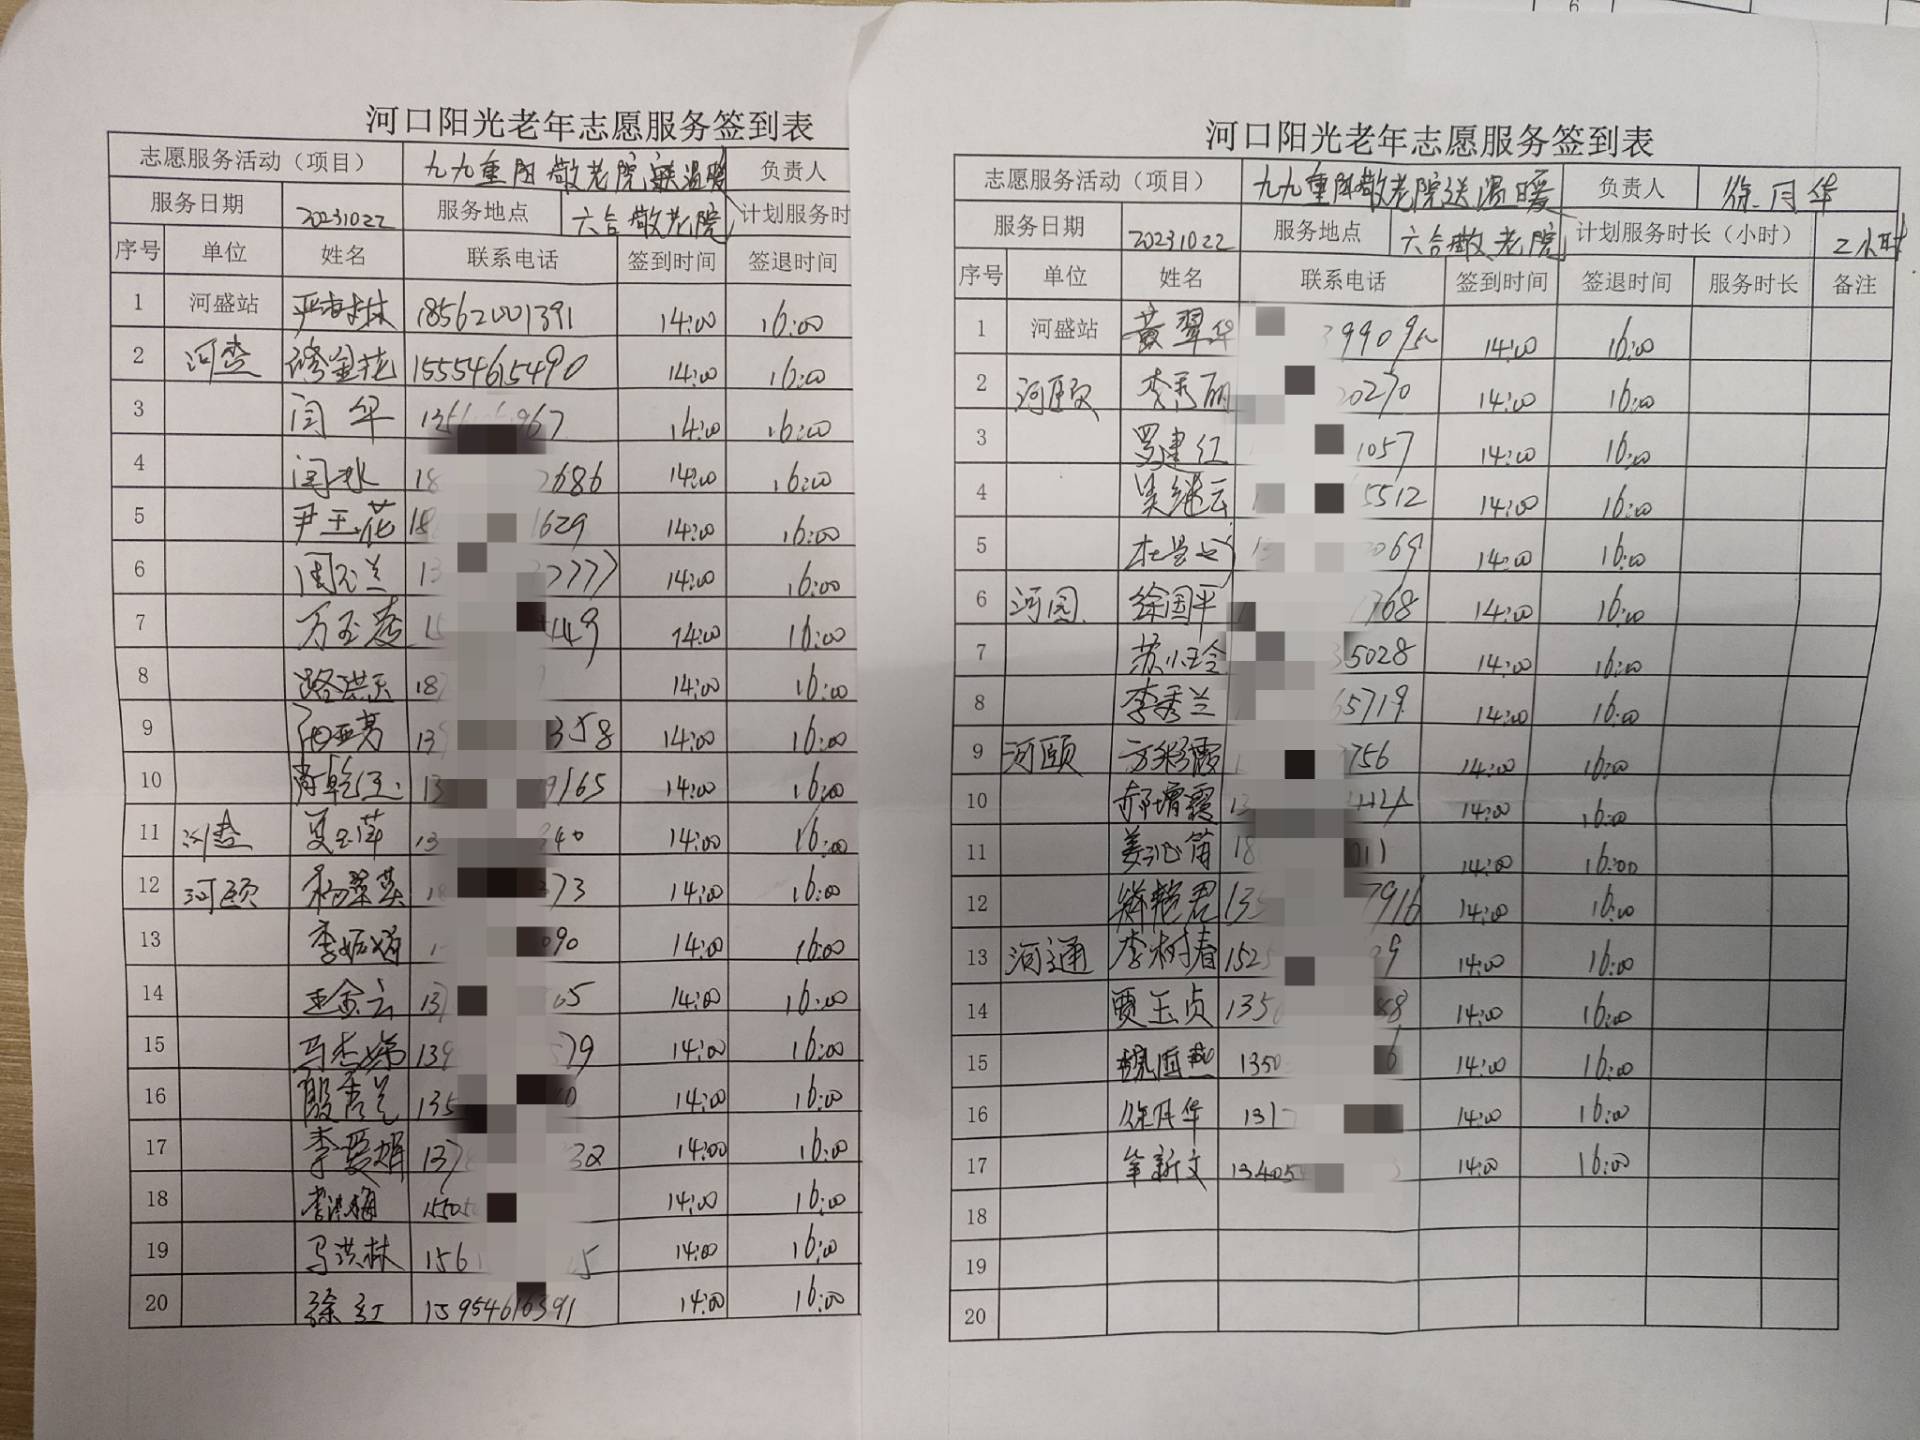 河口阳光老年志愿服务签到表
志愿服务活动（项目） 九九重阳敬老院 温暖 负责人
服务日期 20231022 服务地点 六合敬老院 计划服务时
序号 单位 姓名 联系电话 签到时间 签退时间
1 河盛站 严 林 18562001391 14:00 16:00
2 金花 15554615490 14:00 16:00
3 闫华 967 14:00 16:00
4 闫冰 18 2686 14:00 16:00
5 尹玉花 18 1629 14:00 16:00
6 周玉兰 13 7777 14:00 16:00
7 万玉 15 449 14:00 16:00
8 路洪玉 18 14:00 16:00
9 13 358 14:00 16:00
10 13 9165 14:00 16:00
11 夏玉萍 13 940 14:00 16:00
12 河颐 杨翠英 373 14:00 16:00
13 李 090 14:00 16:00
14 金云 137 05 14:00 16:00
15 马杰娣 139 579 14:00 16:00
16 殷秀兰 135 0 14:00 16:00
17 李爱娟 137 32 14:00 16:00
18 李洪梅 1505 14:00 16:00
19 马洪林 1561 5 14:00 16:00
20 徐红 15954616391 14:00 16:00
河口阳光老年志愿服务签到表
志愿服务活动（项目） 九九重阳敬老院送温暖 负责人 徐月华
服务日期 20231022 服务地点 六合敬老院 计划服务时长（小时） 2小时
序号 单位 姓名 联系电话 签到时间 签退时间 服务时长 备注
1 河盛站 黄翠华 14:00 16:00
2 河颐 李秀丽 20270 14:00 16:00
3 罗建红 1057 14:00 16:00
4 吴继云 5512 14:00 16:00
5 杜 13 069 14:00 16:00
6 河园 徐国平 768 14:00 16:00
7 苏小玲 35028 14:00 16:00
8 李秀兰 65719 14:00 16:00
9 河颐 方彩霞 756 14:00 16:00
10 郝增霞 13 14:00 16:00
11 姜沁笛 18 011 14:00 16:00
12 艳君 135 7916 14:00 16:00
13 河通 李树春 1525 9 14:00 16:00
14 贾玉贞 1356 88 14:00 16:00
15 1350 6 14:00 16:00
16 徐月华 131 14:00 16:00
17 新文 134054 14:00 16:00
18
19
20